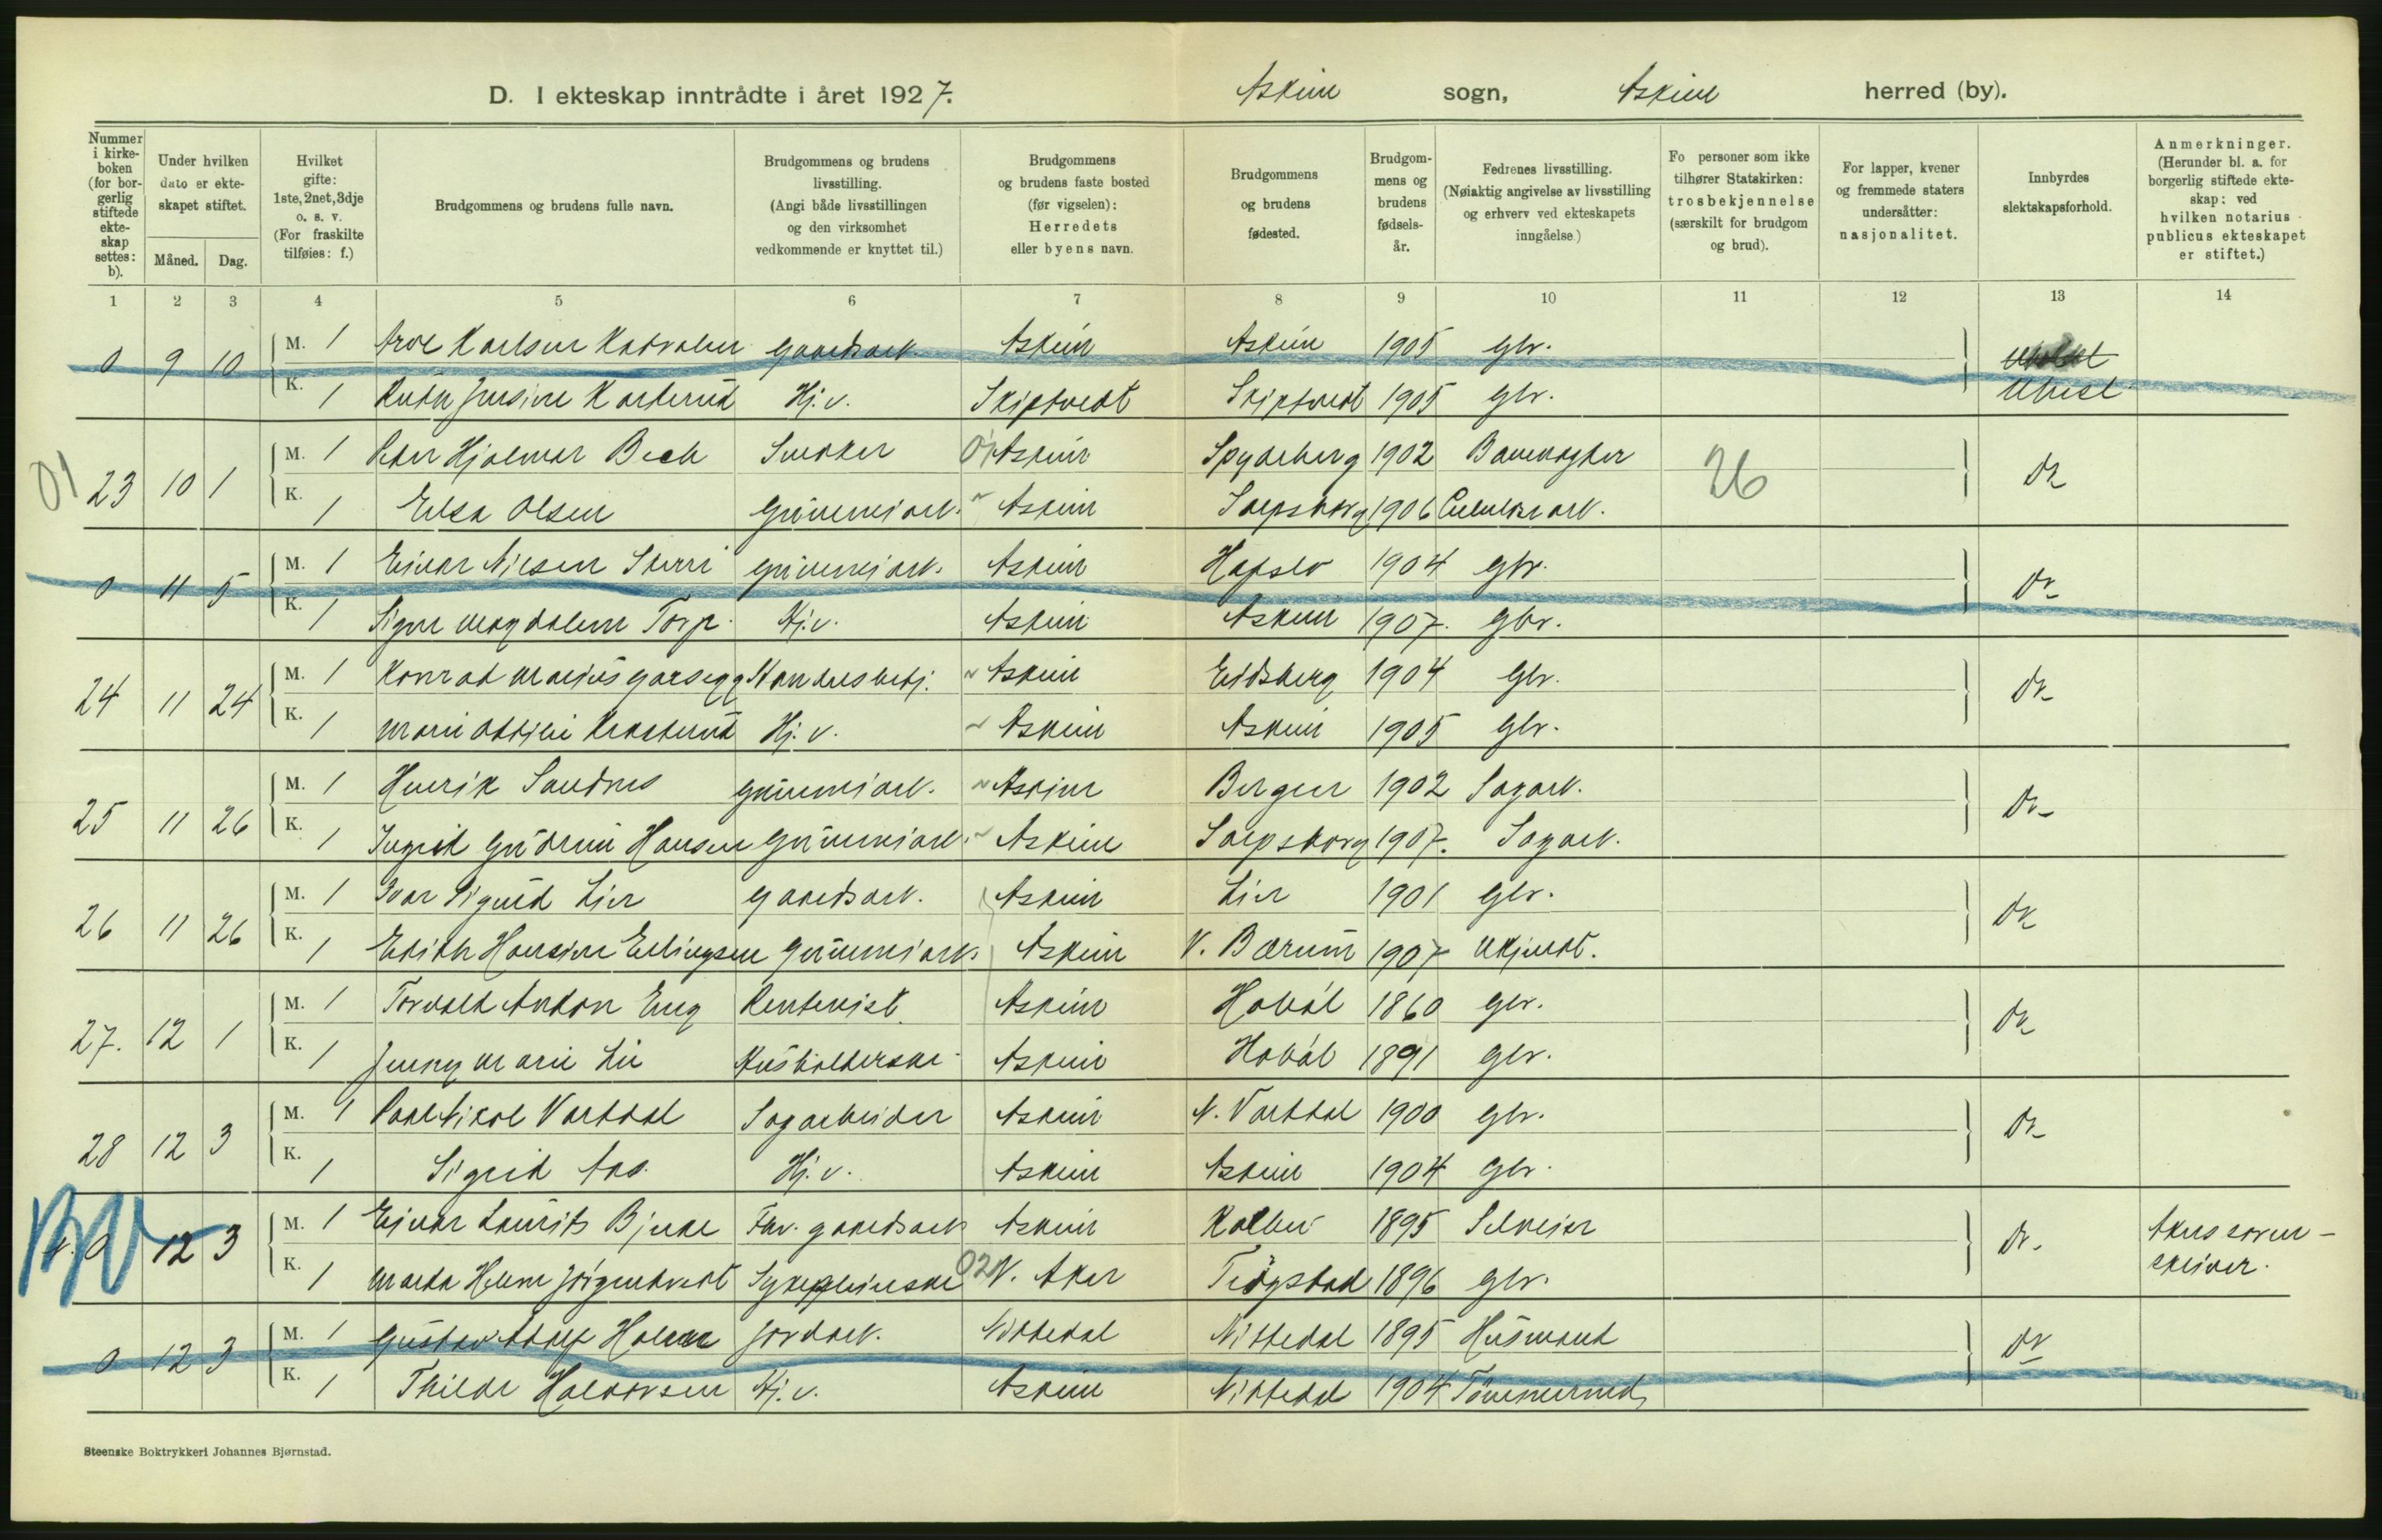 D. I ekteskap inntrådte i året 1927. Askim sogn, Askim herred (by).
Nummer i kirkeboken (for borgerlig stiftede ekteskap settes: b).
Under hvilken dato er ekteskapet stiftet.
Måned. Dag.
Hvilket gifte: 1ste, 2net, 3dje o. s. v. (For fraskilte tilføies: f.)
Brudgommens og brudens fulle navn.
Brudgommens og brudens livsstilling. (Angi både livsstillingen og den virksomhet vedkommende er knyttet til.)
Brudgommens og brudens faste bosted (før vigselen): Herredets eller byens navn.
Brudgommens og brudens fødested.
Brudgommens og brudens fødselsår.
Fedrenes livsstilling. (Nøiaktig angivelse av livsstilling og erhverv ved ekteskapets inngåelse.)
Fo personer som ikke tilhører Statskirken: trosbekjennelse (særskilt for brudgom og brud).
For lapper, kvener og fremmede staters undersåtter: nasjonalitet.
Innbyrdes slektskapsforhold.
Anmerkninger. (Herunder bl. a. for borgerlig stiftede ekteskap: ved hvilken notarius publicus ekteskapet er stiftet.)
1 2 3 4 5 6 7 8 9 10 11 12 13 14
0 9 10 M. 1 Karlsen gaardsarb. Askim Askim 1905 gbr.
K. 1 Hj.v. Skiptvedt Skiptvedt 1905 gbr. Ubesl.
01 23 10 1 M. 1 Peter Hjalmar Bech Snekker 01 Askim Spydeberg 1902 Banevogter 26 Do
K. 1 Elsa Olsen Gummiarb. Askim Sarpsborg 1906 Cellulosearb.
0 11 5 M. 1 Einar Nilsen gummiarb. Askim Hafslo 1904 gbr. Do
K. 1 Signe Magdalene Torp. Hj.v. Askim Askim 1907. gbr.
24 11 24 M. 1 Konrad Marius Garsegg Handelsbetj. Askim Eidsberg 1904 Gbr. Do
K. 1 Marie Hj.v. Askim Askim 1905 gbr.
25 11 26 M. 1 Henrik Sandnes gummiarb. Askim Bergen 1902 Sagarb. Do
K. 1 Ingrid Gudrun Hansen Gummiarb. Askim Sarpsborg 1907. Sagarb.
26 11 26 M. 1 Ivar Sigurd Lier gaardsarb. Askim Lier 1901 gbr. Do
K. 1 Edith Hansine Ellingsen Gummiarb. Askim V. Bærum 1907 Ukjendt.
27. 12 1 M. 1 Torvald Anton Eng Rentenist. Askim Hobøl 1860 gbr. Do
K. 1 Jenny Marie Lie Husholderske Askim Hobøl 1891 gbr.
28 12 3 M. 1 Paal Nikol Vartdal Sagarbeider Askim N. Vartdal 1900 gbr. Do
K. 1 Sigrid Aas. Hj.v. Askim Askim 1904 gbr.
BV 0 12 3 M. 1 Einar Laurits Bjerke Fhv. gaardsarb Askim Kolbu 1895 Selveier Do Akers sorenskriver.
K. 1 Marta Helene Jörgentvedt Sykepleierske 02 V. Aker Trögstad 1896 gbr.
0 12 3 M. 1 Gustav Adolf Holm Jordarb. Nittedal Nittedal 1895 Husmand Do
K. 1 Thilde Halvorsen Hj.v. Askim Nittedal 1904
Steenske Boktrykkeri Johannes Bjørnstad.